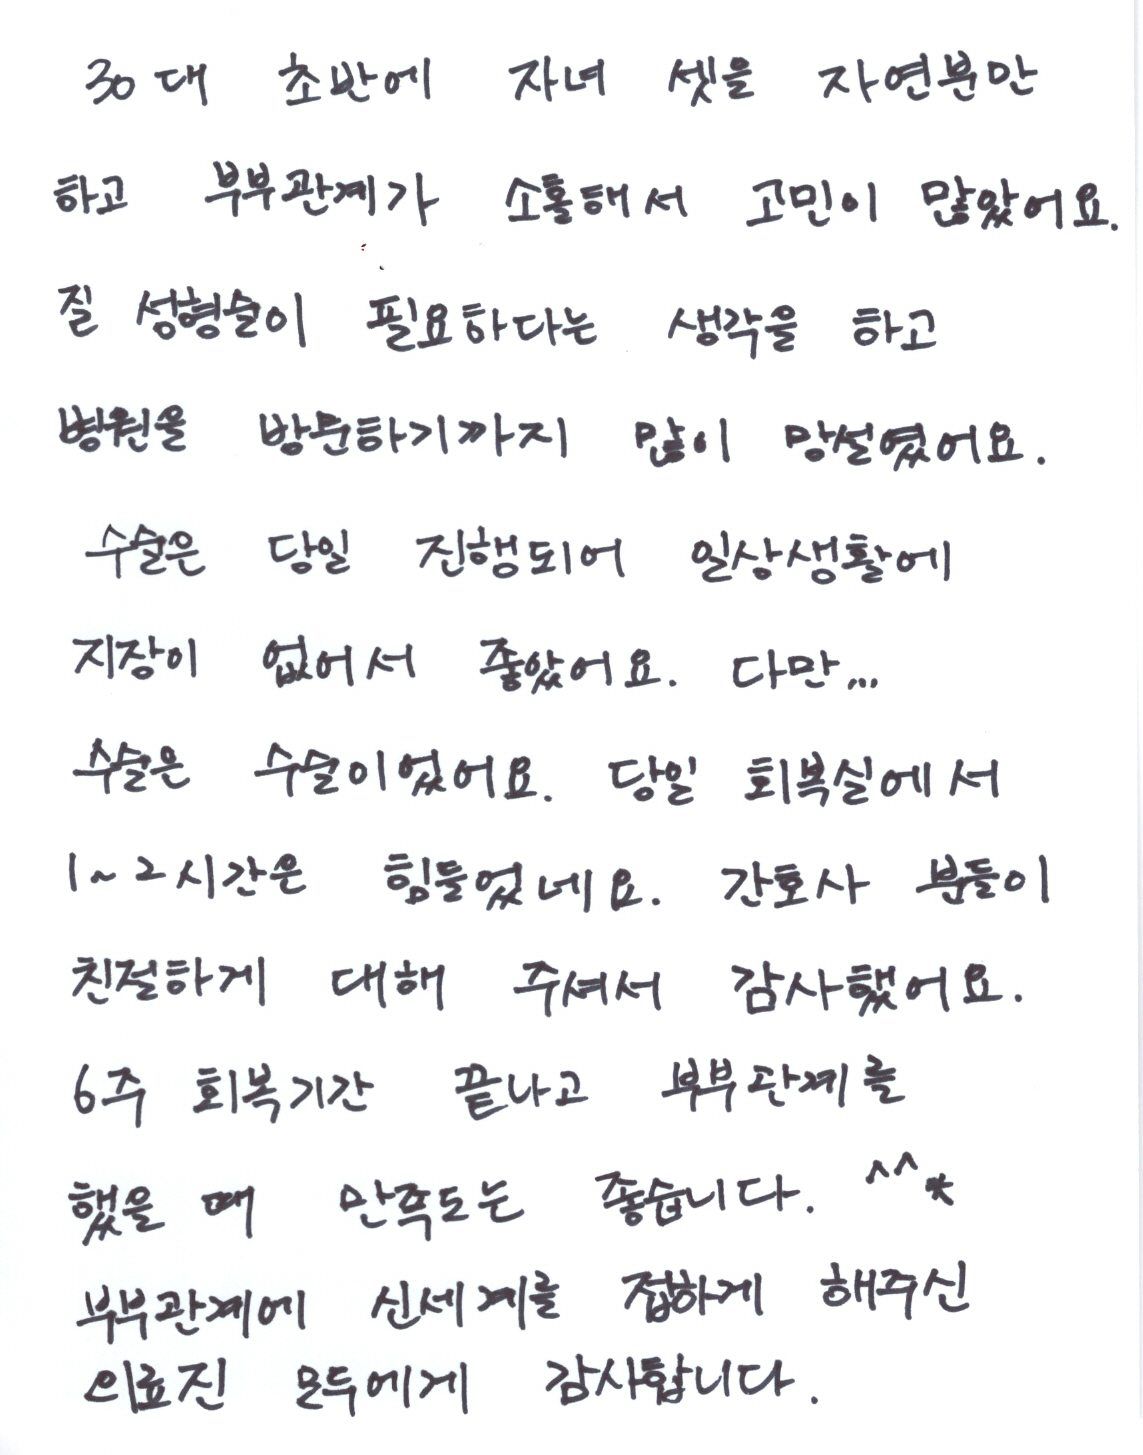 30대 초반에 자녀 셋을 자연분만
하고 부부관계가 소홀해서 고민이 많았어요.
질 성형술이 필요하다는 생각을 하고
병원을 방문하기까지 많이 망설였어요.
수술은 당일 진행되어 일상생활에
지장이 없어서 좋았어요. 다만...
수술은 수술이었어요. 당일 회복실에서
1~2시간은 힘들었네요. 간호사 분들이
친절하게 대해 주셔서 감사했어요.
6주 회복기간 끝나고 부부관계를
했을 때 만족도는 좋습니다. ^^*
부부관계에 신세계를 접하게 해주신
의료진 모두에게 감사합니다.